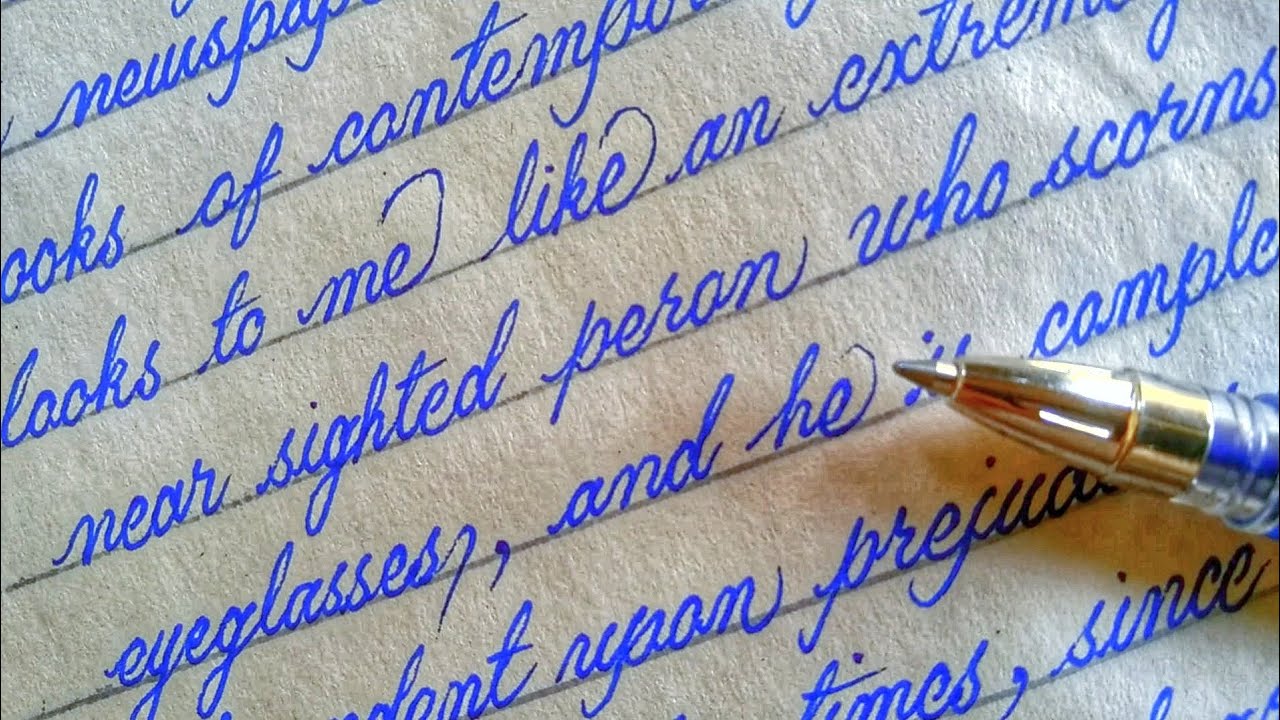 newspape
ooks of contempor
looks to me like an extremely
near sighted peron who scorns
eyeglasses, and he is comple
ndent upon prejud
times, since